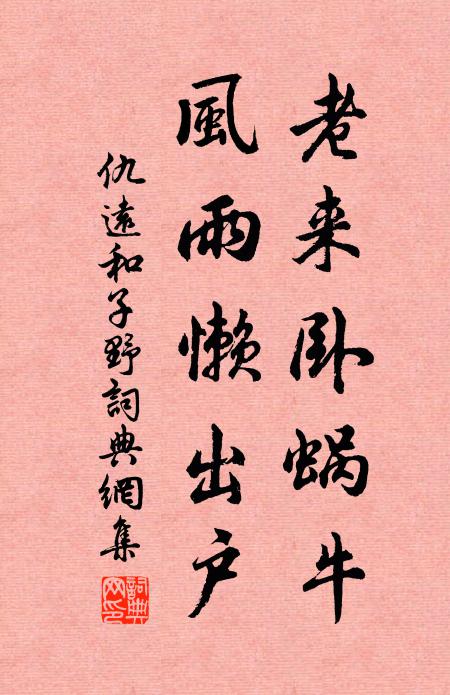 老来卧蜗牛
風雨懒出户
仇遠和子野詞典網集
詞典網印